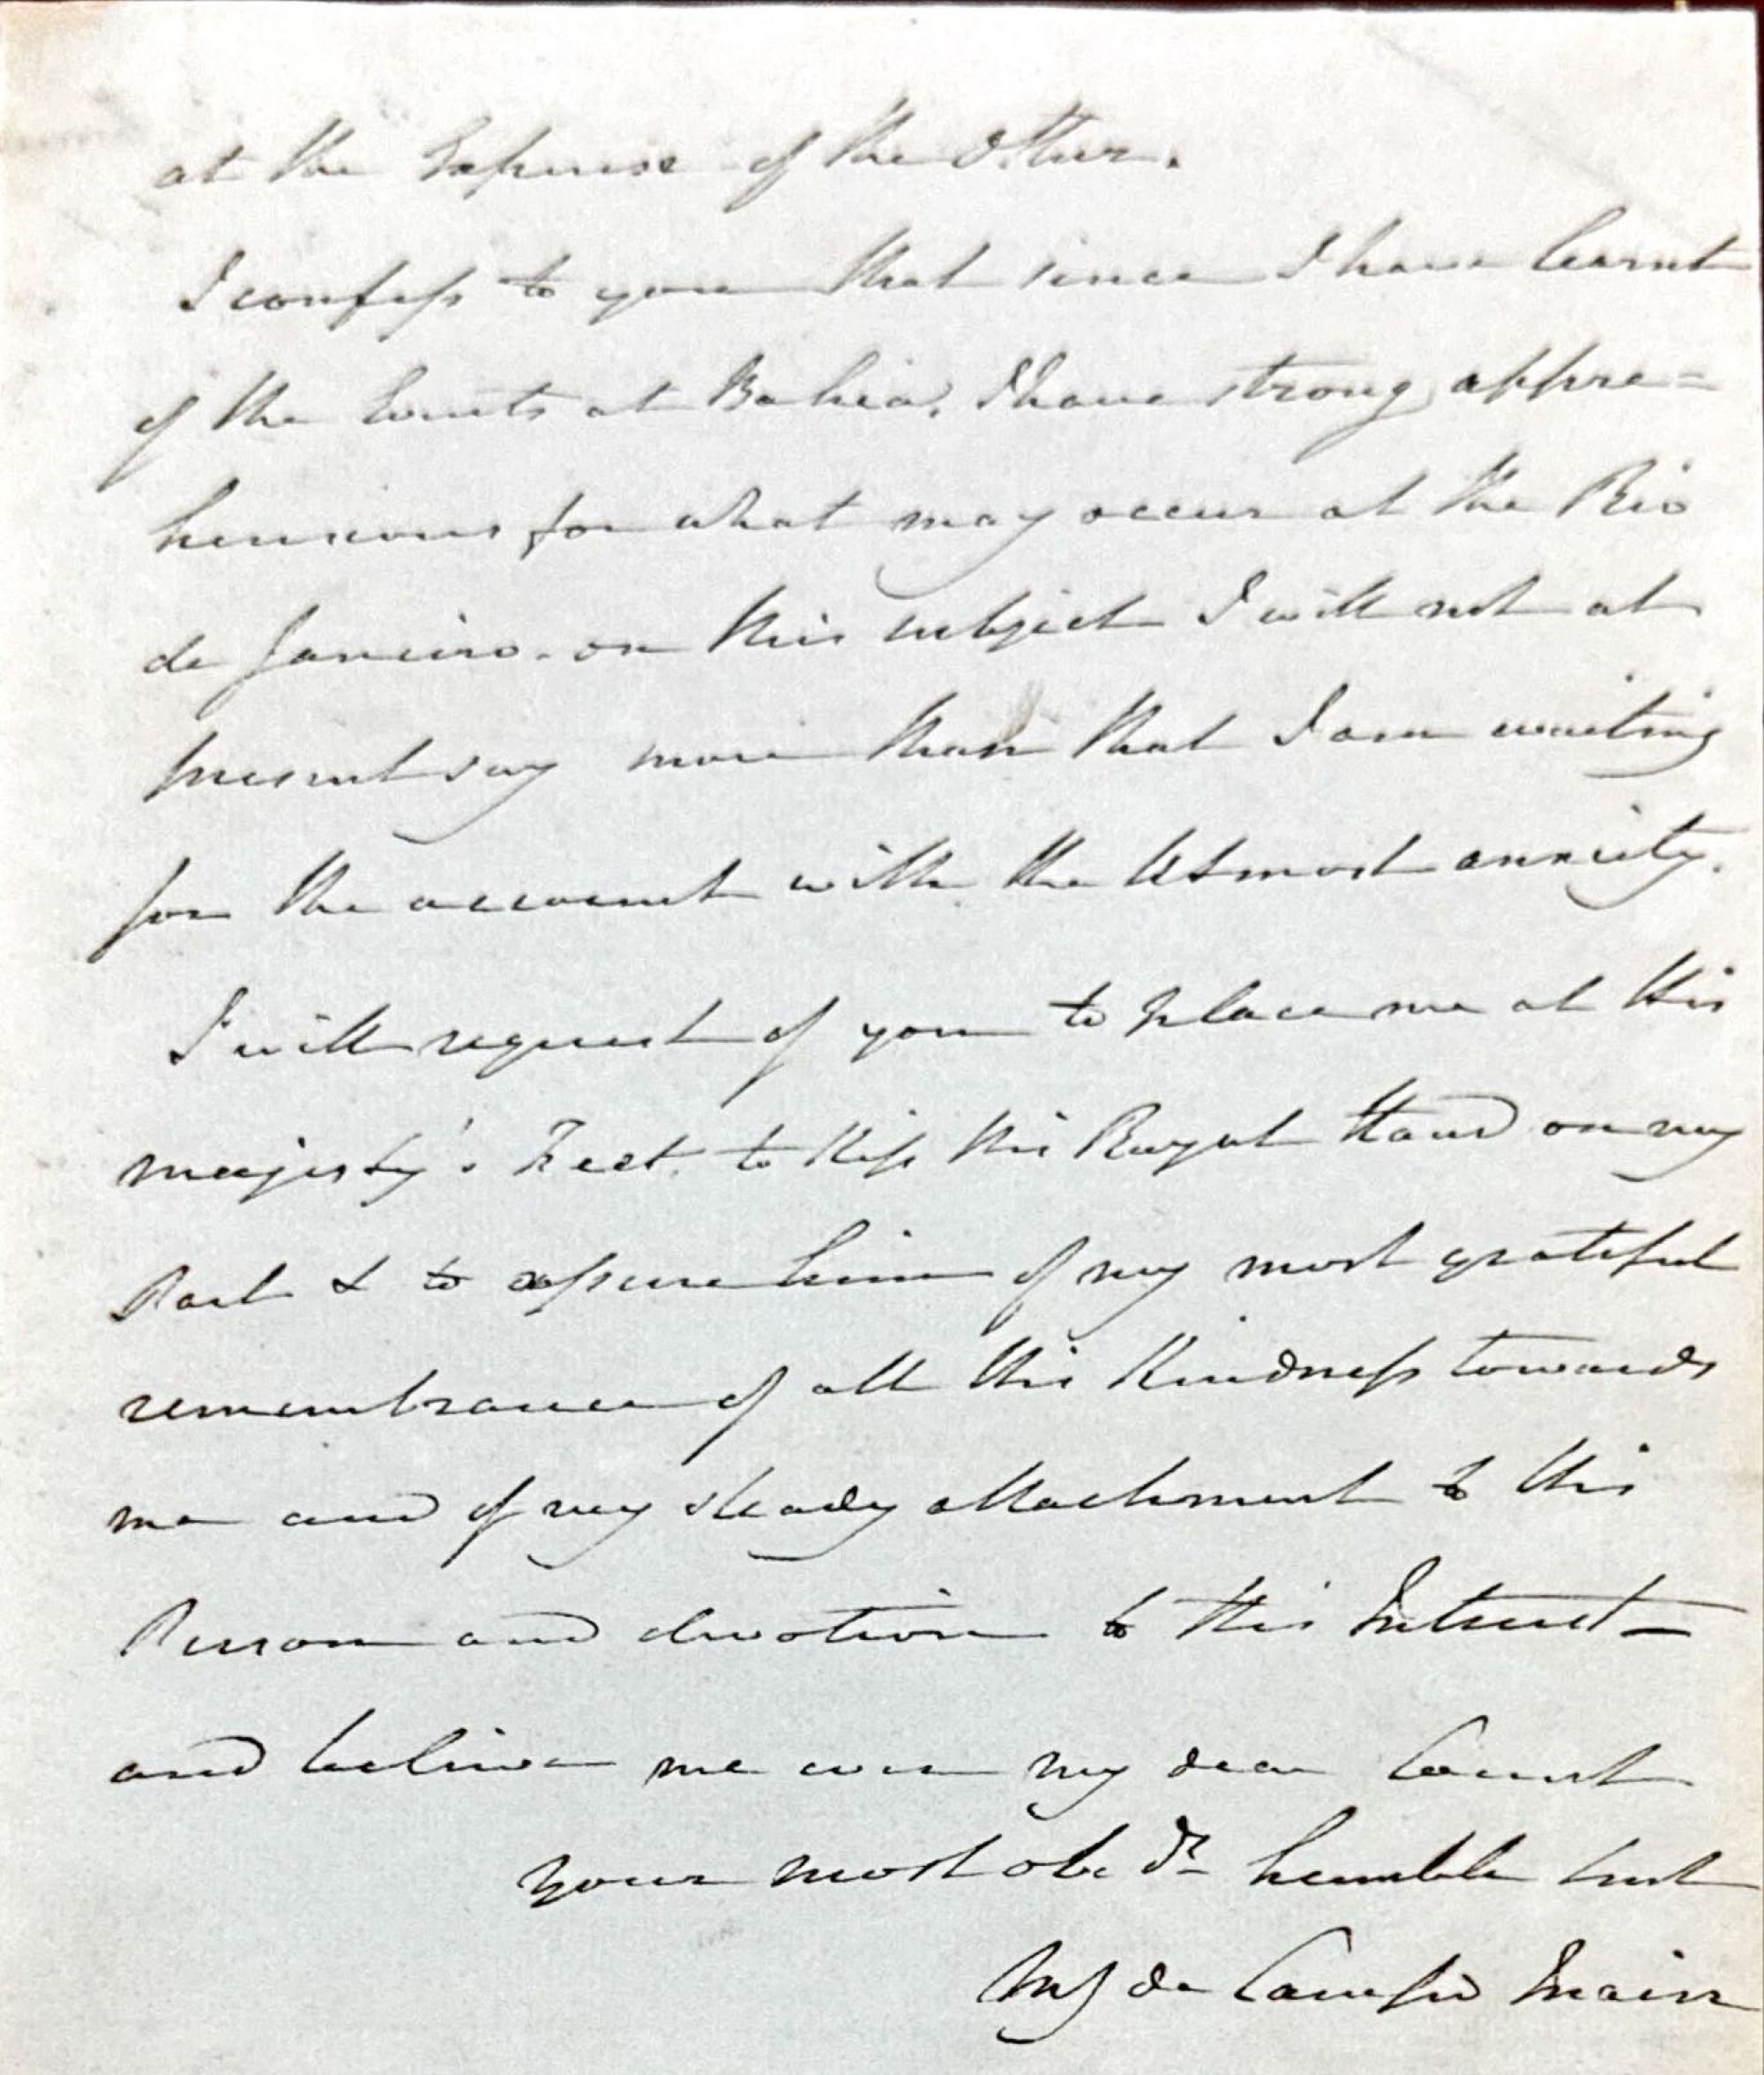 at the Expense of the Other.
I confess to you that since I have learnt
of the Events at Bahia, I have strong appre=
hensions for what may occur at the Rio
de Janeiro. on this subject I will not at
present say more than that I am waiting
for the account with the Utmost anxiety.
I will request of you to place me at His
majesty's Feet. to Kiss His Royal Hand on my
Part & to assure him of my most grateful
remembrance of all His Kindness towards
me and of my steady attachment to His
Person and devotion to His Interest –
and believe me ever my dear Count
your most obedt humble
de Campo Maior